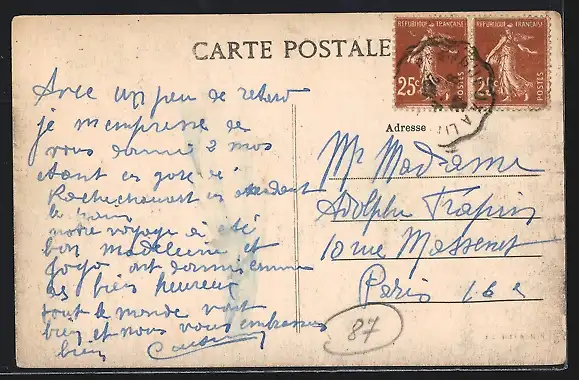 CARTE POSTALE
REPUBLIQUE FRANÇAISE
25c POSTES
REPUBLIQUE FRANÇAISE
25 POSTES
Adresse
Avec un peu de retard
je m'empresse de
vous donner 2 mos
étant en gare de
Rochechouart en attendant
le train
notre voyage a été
bon madeleine et
Jojo ont dormis comme
des bien heureux
tout le monde vont
bien et nous vous embrassons
bien
Mr Madame
Adolphe
10 rue Massenet
Paris 16e
87